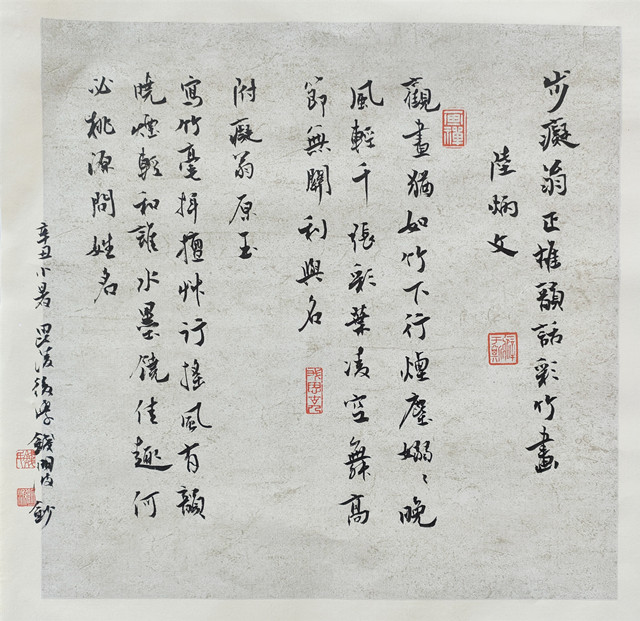 步癡翁正韻話彩竹畫
陸炳文
觀畫猶如竹下行煙塵嫋〻晚
風輕千張彩葉凌空舞高
節無關利與名
附癡翁原玉
寫竹毫揮擅艸行搖風有韻
曉煙輕和誰水墨饒佳趣何
必桃源問姓名
辛丑小暑毘陵後學錢鈔